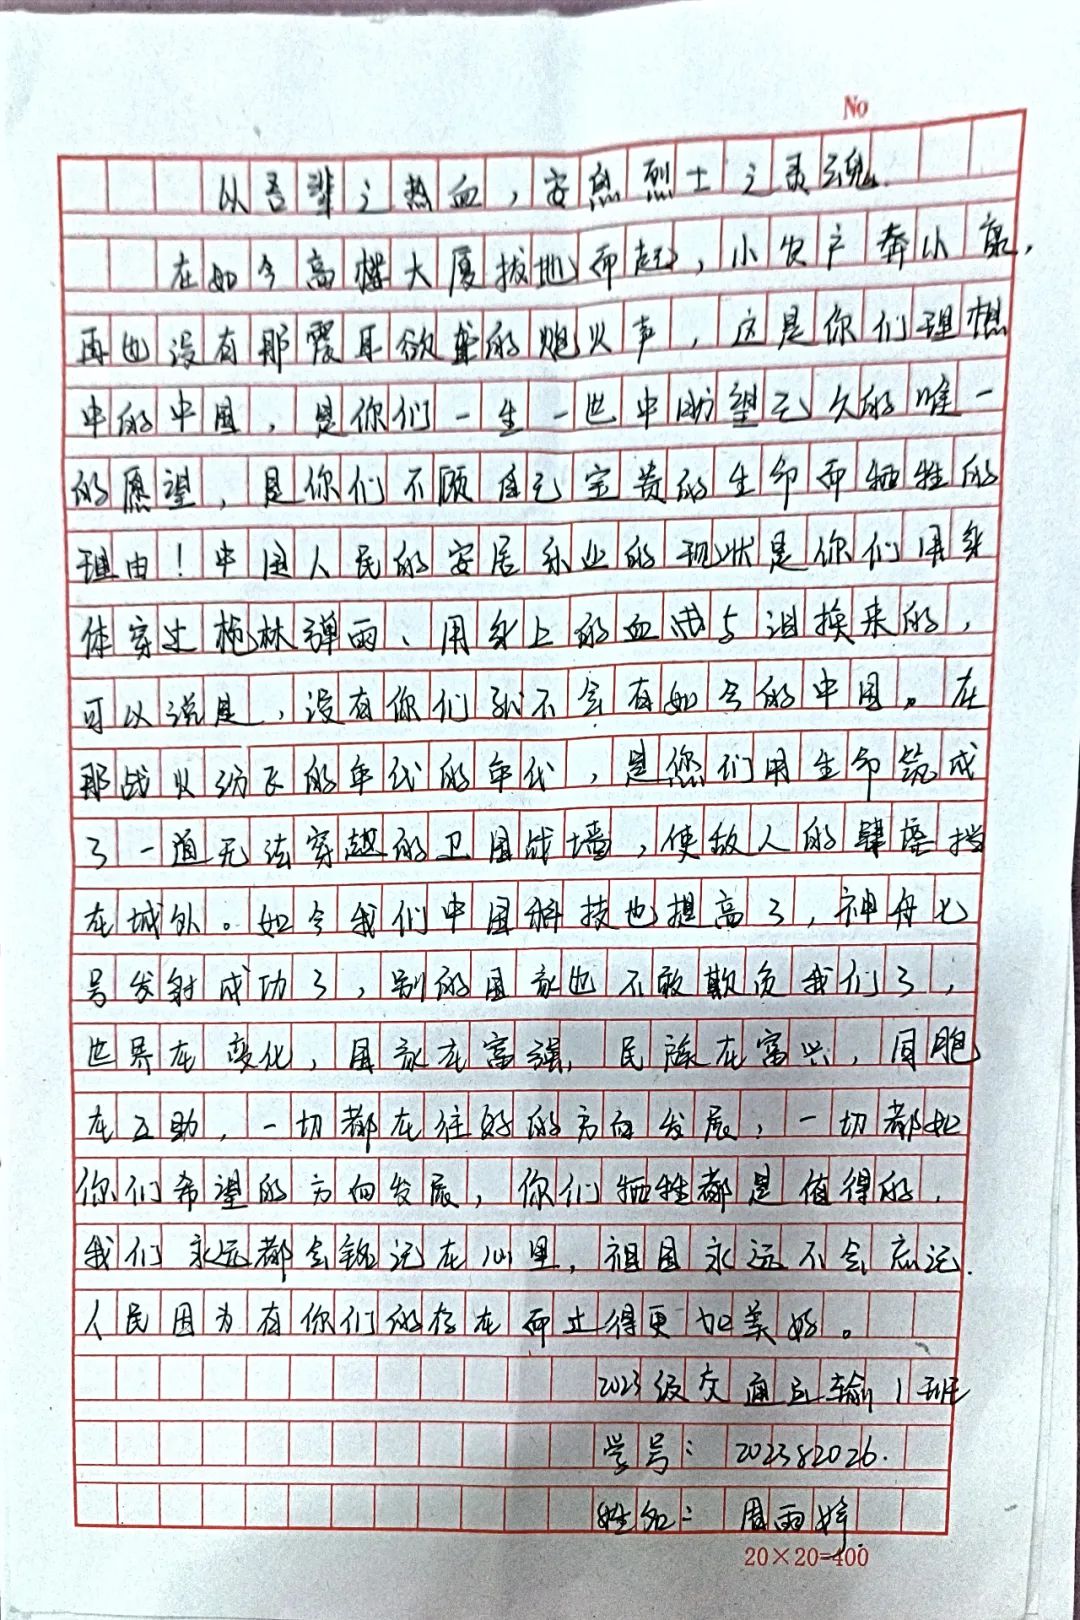 No
以吾辈之热血，安息烈士之灵魂.
在如今高楼大厦拔地而起，小农户奔小康，
再也没有那震耳欲聋的炮火声，这是你们理想
中的中国，是你们一生一世中盼望已久的唯一
的愿望，是你们不顾自己宝贵的生命而牺牲的
理由！中国人民的安居乐业的现状是你们用身
体穿过枪林弹雨、用身上的血肉与泪换来的，
可以说是，没有你们就不会有如今的中国。在
那战火纷飞的年代的年代，是您们用生命筑成
了一道无法穿越的卫国战墙，使敌人的肆虐挡
在城外。如今我们中国科技也提高了，神舟七
号发射成功了，别的国家也不敢欺负我们了，
世界在变化，国家在富强，民族在富兴，同胞
在互助，一切都在往好的方向发展，一切都如
你们希望的方向发展，你们牺牲都是值得的，
我们永远都会铭记在心里，祖国永远不会忘记.
人民因为有你们的存在而过得更加美好。
2023级交通运输1班
学号：202382026.
姓名：周雨婷.
20×20=400